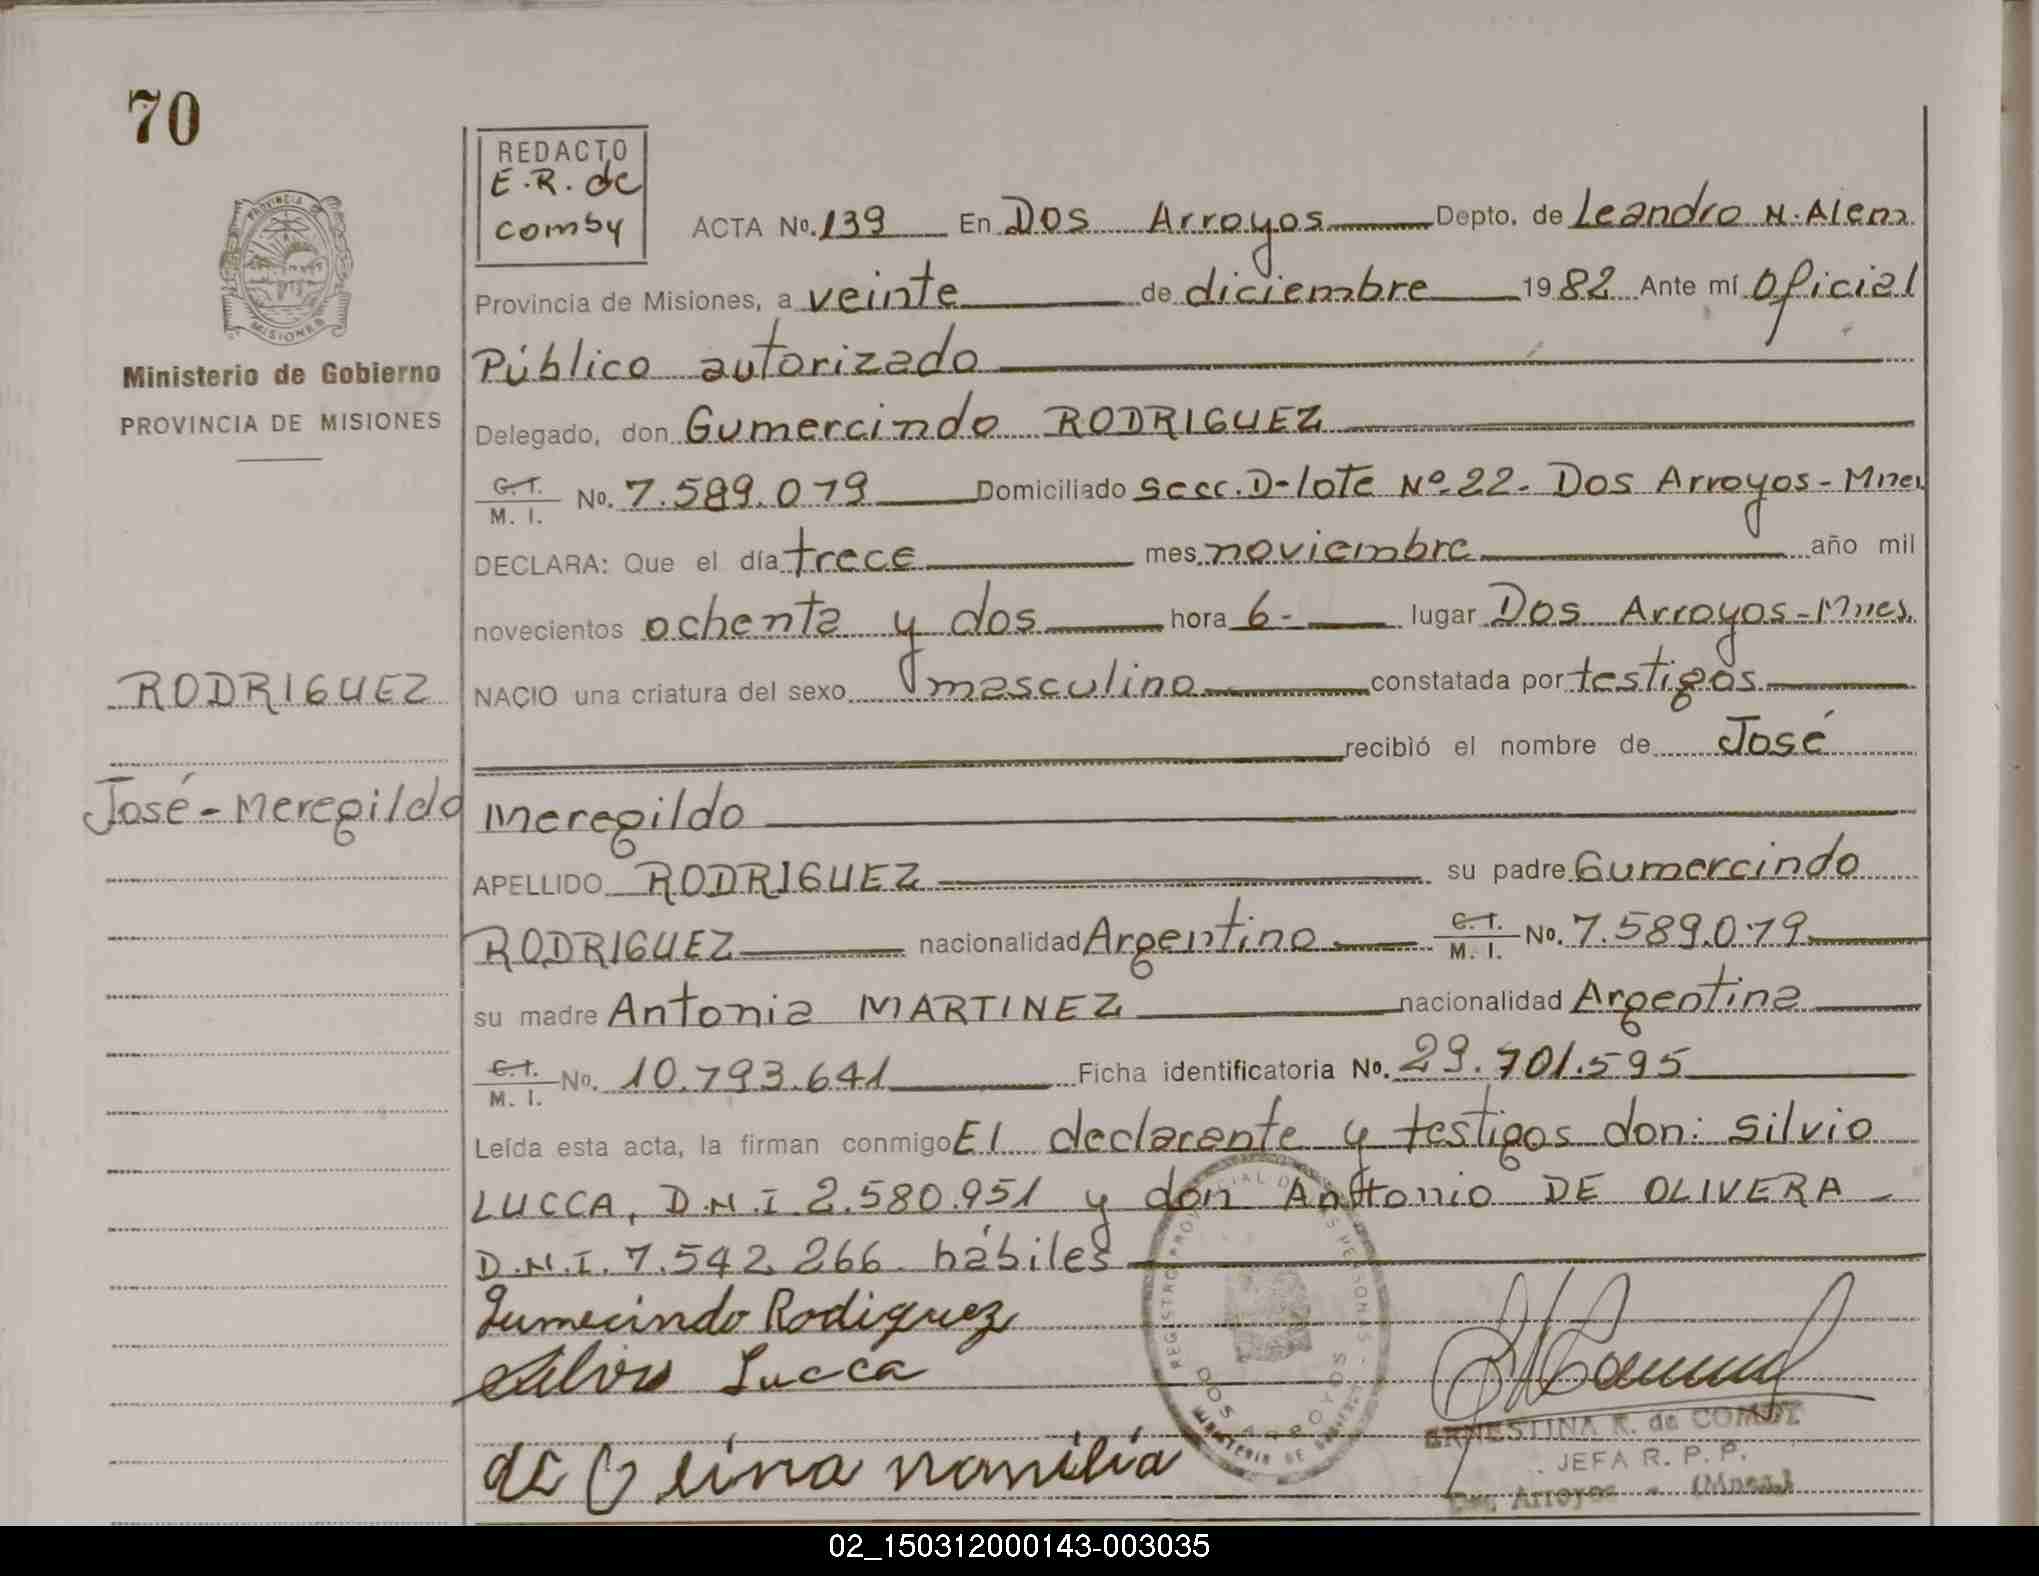 70
REDACTO
E.R. de
comby
ACTA No. 139 En Dos Arroyos Depto. de Leandro N. Alem
Provincia de Misiones, a veinte de diciembre 1982 Ante mí Oficial
Público autorizado
Ministerio de Gobierno
PROVINCIA DE MISIONES
Delegado, don Gumercindo RODRIGUEZ
C.T. M. I. No. 7.589.079 Domiciliado Secc. D-lote Nº 22- Dos Arroyos - Mnes.
DECLARA: Que el día trece mes noviembre año mil
novecientos ochenta y dos hora 6- lugar Dos Arroyos - Mnes.
RODRIGUEZ
NACIO una criatura del sexo masculino constatada por testigos
recibìó el nombre de José
José - Meregildo
Meregildo
APELLIDO RODRIGUEZ su padre Gumercindo
RODRIGUEZ nacionalidad Argentino C.T. M. I. No. 7.589.079
su madre Antonia MARTINEZ nacionalidad Argentina
C.T. M. I. No. 10.793.641 Ficha identificatoria No. 29.701.595
Leída esta acta, la firman conmigo El declarante y testigos don: Silvio
LUCCA, D.N.I 2.580.951 y don Antonio DE OLIVERA -
D.N.I. 7.542.266 hábiles
Gumecindo Rodiguez
Silvio Lucca
REGISTRO PROVINCIAL DE LAS PERSONAS
DOS ARROYOS
MINISTERIO DE GOBIERNO
ERNESTINA R. de COMBY
JEFA R. P. P.
Dos Arroyos - (Mnes.)
02_150312000143-003035